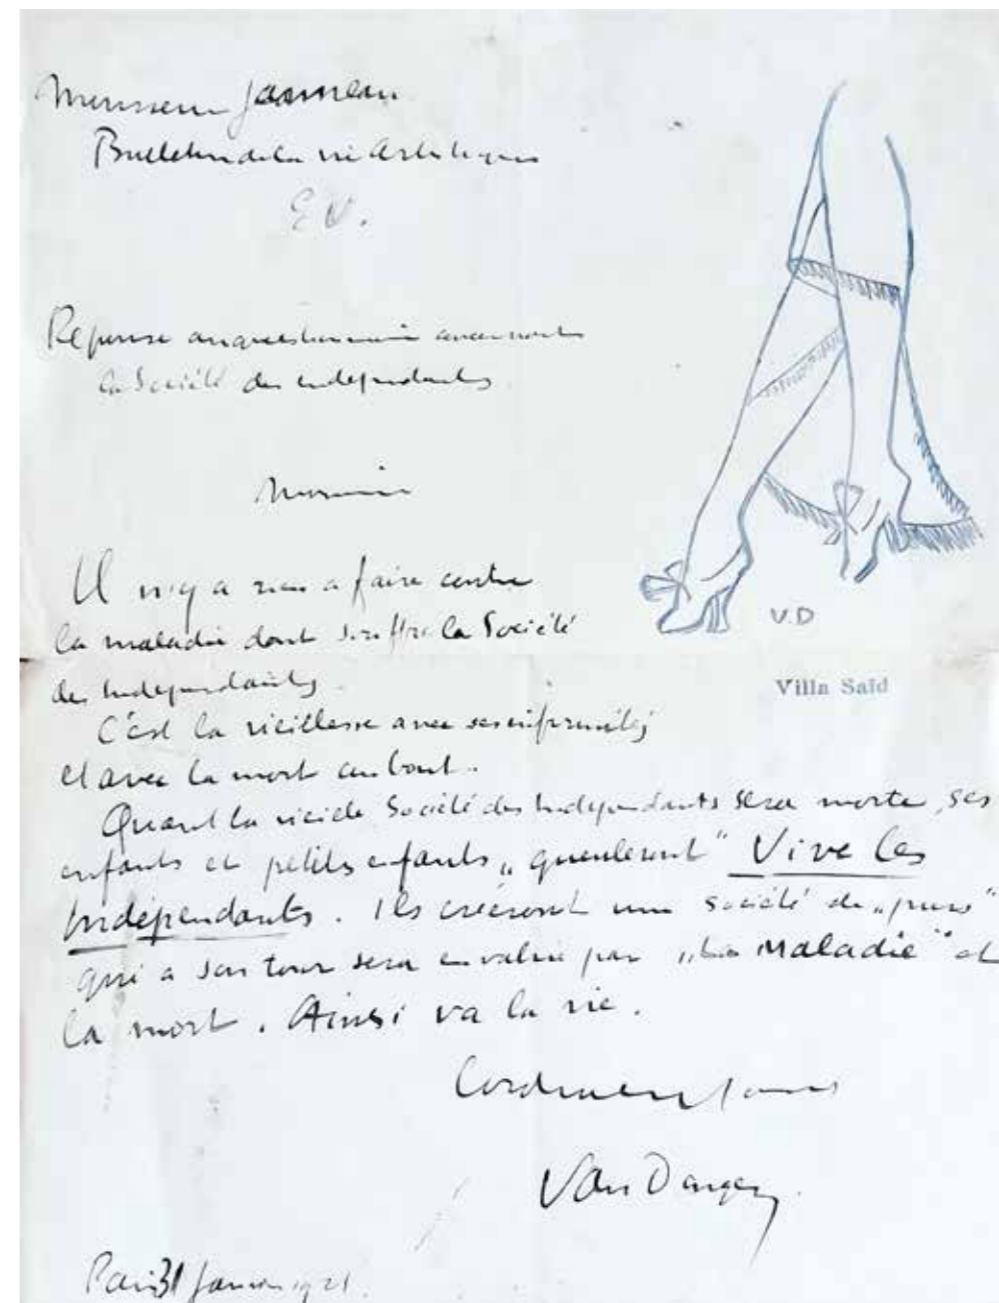 Monsieur Janneau
Bulletin de la vie Artistique
E V.
Réponse au questionnaire concernant
la Société des independants
Monsieur
Il n'y a rien a faire contre
la maladie dont souffre la Société
des Independants.
C'est la vieillesse avec ses infirmités
et avec la mort au bout.
Quand la vieille Société des Independants sera morte, ses
enfants et petits enfants „gueuleront" Vive les
Indépendants. Ils creéront une société de „purs"
qui a son tour sera envahie par „La Maladie" et
la mort. Ainsi va la vie.
Cordialement à vous
Van Dongen.
Paris 31 Janvier 1921.
V.D
Villa Saïd